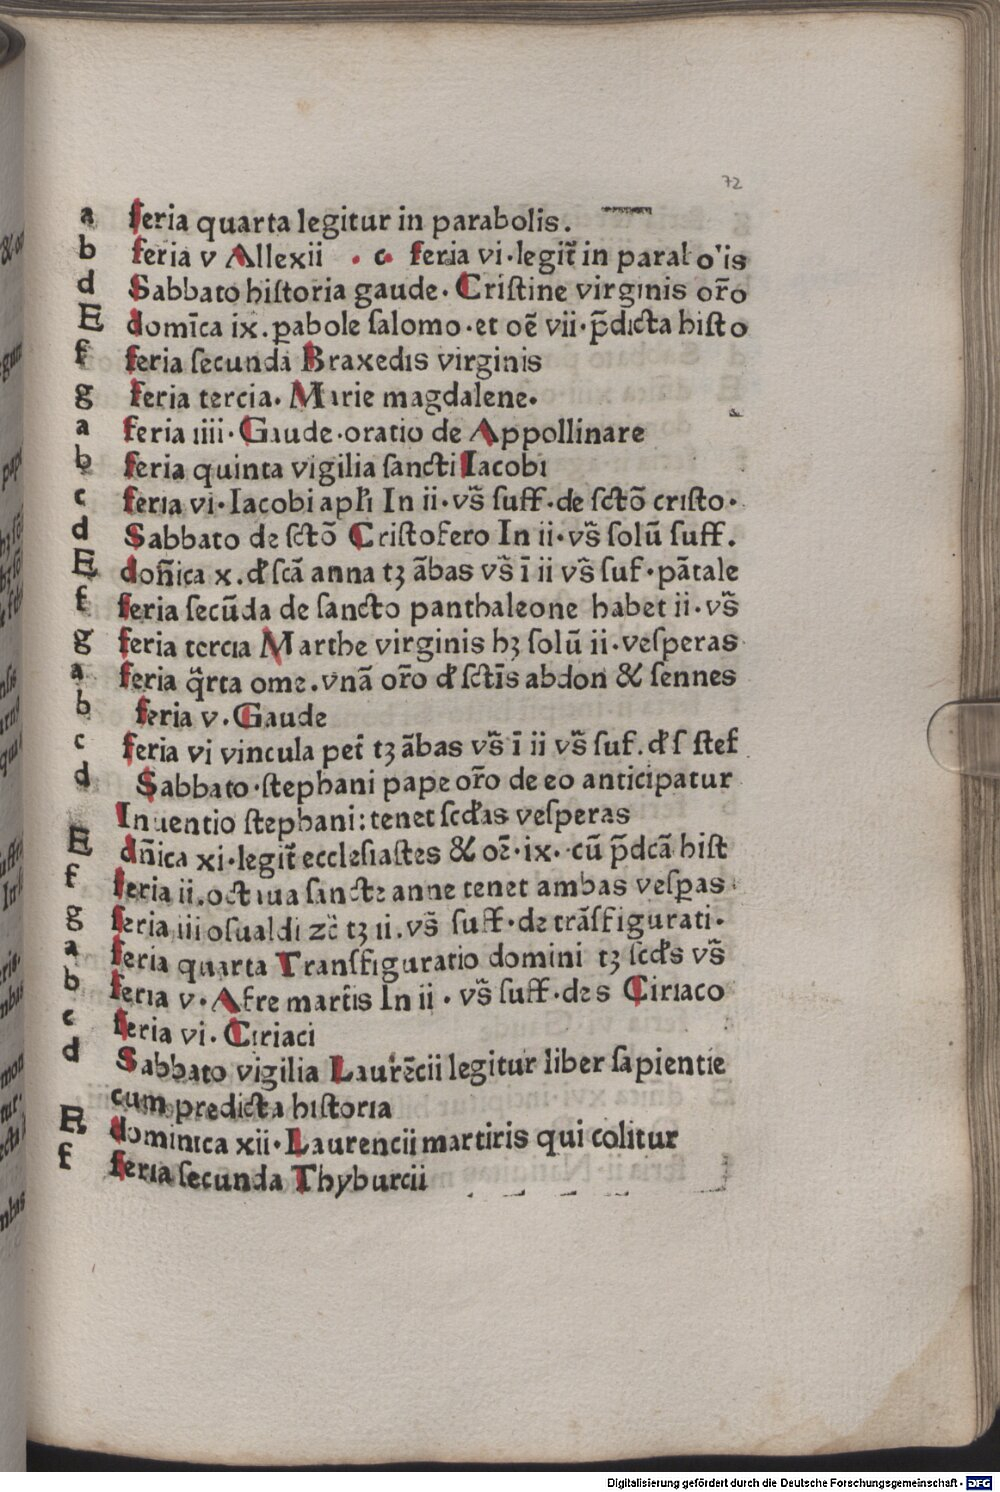 72
a feria quarta legitur in parabolis.
b feria v Allexii · c· feria vi·legit̃ in parabolis
d Sabbato hiſtoria gaude· Criſtine virginis or̃o
E domĩca ix. ꝑabole ſalomo·et oẽ vii·p̃dicta hiſto
f feria ſecunda Braxedis virginis
g feria tercia. Marie magdalene.
a feria iiii·Gaude·oratio de Appollinare
b feria quinta vigilia ſancti Iacobi
c feria vi·Iacobi apl̃i In ii·vs̃ ſuff·de ſctõ criſto·
d Sabbato de ſctõ Criſtofero In ii·vs̃ ſolũ ſuff.
E don̄ica x. đ ſcã anna tꝫ ãbas vs̃ ĩ ii vs̃ ſuf·pãtale
f feria ſecũda de ſancto panthaleone habet ii·vs̃
g feria tercia Marthe virginis hꝫ ſolũ ii·veſperas
a feria q̃rta ome.vnã or̃o đ ſctĩs abdon & ſennes
b feria v.Gaude
c feria vi vincula pet̃ tꝫ ãbas vs̃ ĩ ii vs̃ ſuf.đ ſ ſtef
d Sabbato·ſtephani pape or̃o de eo anticipatur
Inuentio ſtephani:tenet ſcđas veſperas
E dn̄ica xi·legit̃ eccleſiaſtes & oẽ·ix·cũ p̃dcã hiſt
f feria ii.octaua ſancte anne tenet ambas veſꝑas
g feria iii oſualdi zc̃ tꝫ ii.vs̃ ſuff·de trãſfigurati·
a feria quarta Tranſfiguratio domini tꝫ ſcđs vs̃
b feria v·Afre martĩs In ii·vs̃ ſuff·de s Ciriaco
c feria vi. Ciriaci
d Sabbato vigilia Laurẽcii legitur liber ſapientie
cum predicta hiſtoria
E dominica xii·Laurencii martiris qui colitur
f feria ſecunda Thyburcii
Digitalisierung gefördert durch die Deutsche Forschungsgemeinschaft - DFG